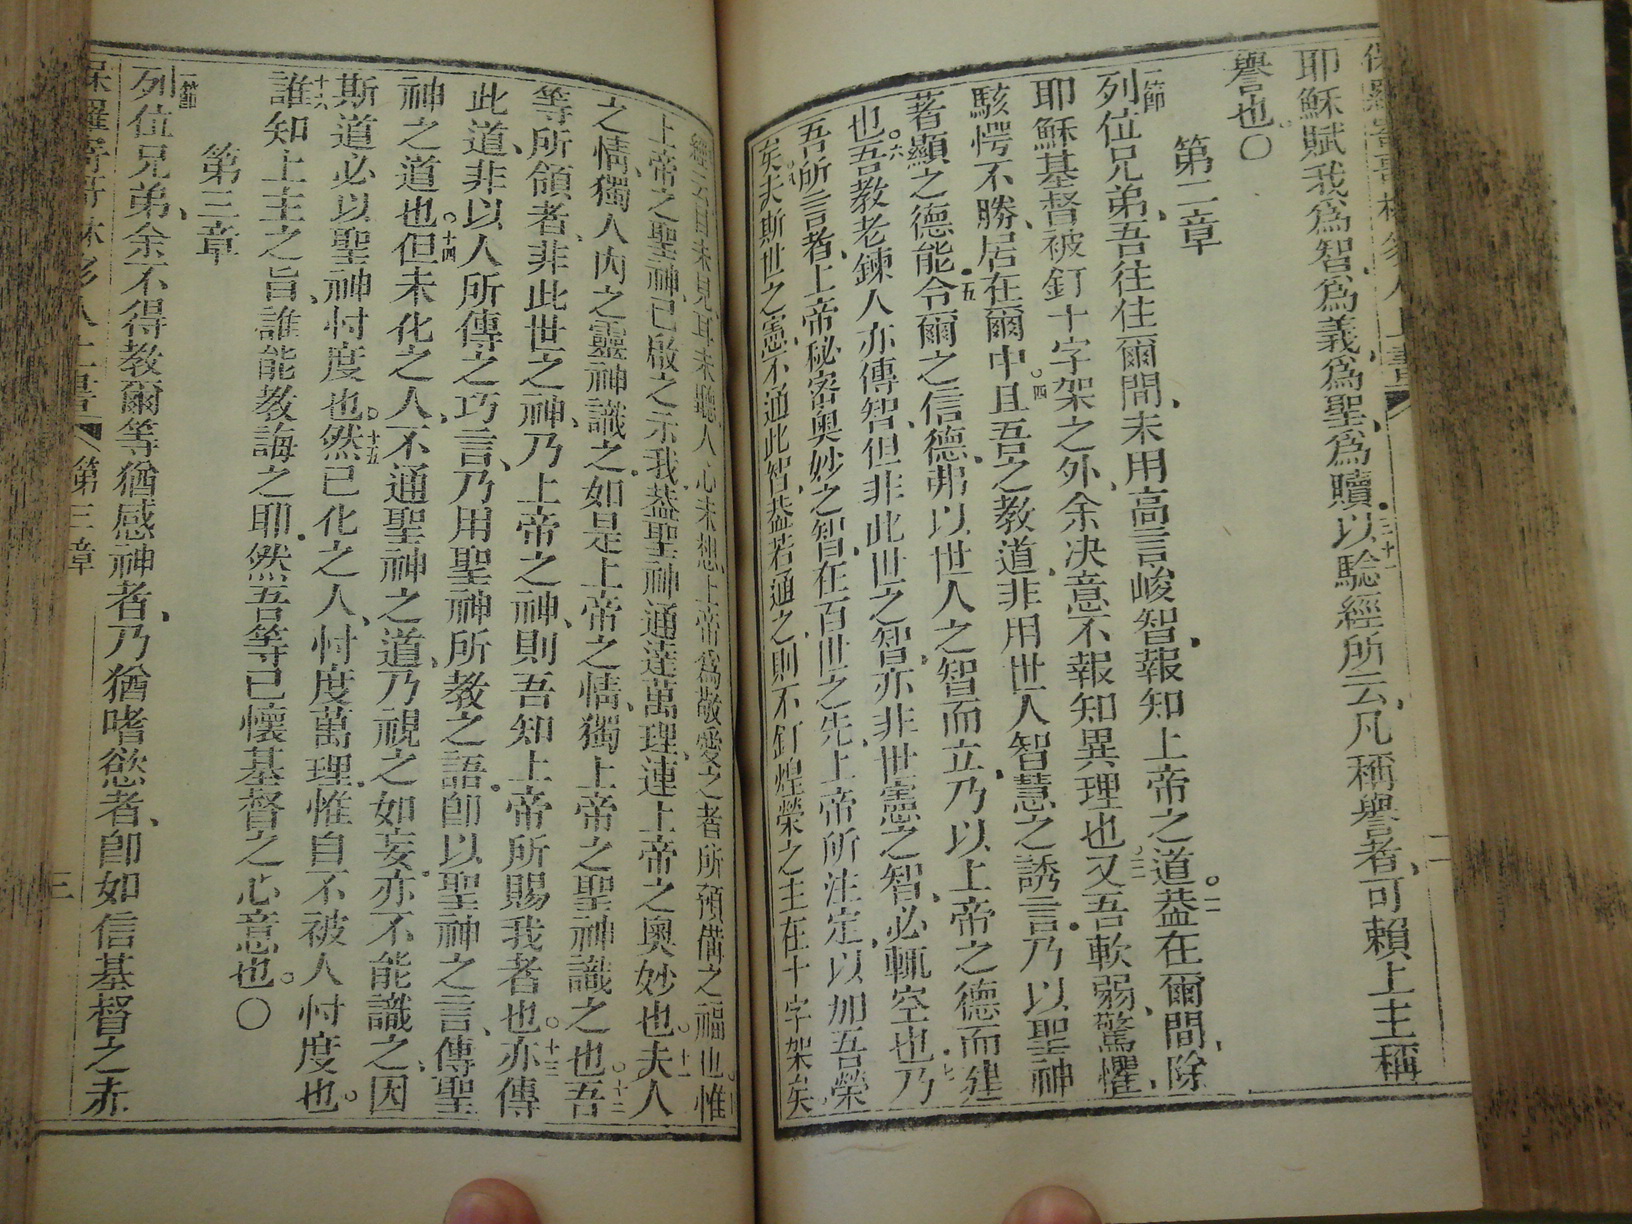 耶穌賦我爲智、爲義、爲聖、爲贖。三十一以驗經所云、凡稱譽者、可賴上主稱
譽也。〇
第二章
一節列位兄弟、吾往住爾間、未用高言峻智、報知上帝之道。二葢在爾間、除
耶穌基督被釘十字架之外、余决意不報知異理也。三又吾軟弱、驚懼、
駭愕不勝、居在爾中。四且吾之教道、非用世人智慧之誘言、乃以聖神
著顯之德能。五令爾之信德、弗以世人之智而立、乃以上帝之德而建
也。六吾教老鍊人亦傳智、但非此世之智、亦非世憲之智、必輒空也。七乃
吾所言者、上帝秘密奥妙之智、在百世之先、上帝所注定、以加吾榮
矣。八夫斯世之憲、不通此智、葢若通之、則不釘煌榮之主在十字架矣。
經云、目未見、耳未聽、人心未想、上帝爲敬愛之者所預備之福也。十惟
上帝之聖神、已啟之示我、葢聖神通達萬理、連上帝之奥妙也。十一夫人
之情、獨人內之靈神識之。如是上帝之情、獨上帝之聖神識之也。十二吾
等所領者、非此世之神、乃上帝之神、則吾知上帝所賜我者也。十三亦傳
此道、非以人所傳之巧言、乃用聖神所教之語。卽以聖神之言、傳聖
神之道也。十四但未化之人、不通聖神之道、乃視之如妄。亦不能識之、因
斯道必以聖神忖度也。十五然已化之人、忖度萬理、惟自不被人忖度也。
十六誰知上主之旨、誰能教誨之耶。然吾等已懷基督之心意也。〇
第三章
一節列位兄弟、余不得教爾等猶感神者、乃猶嗜慾者、卽如信基督之赤
第三章
三
二